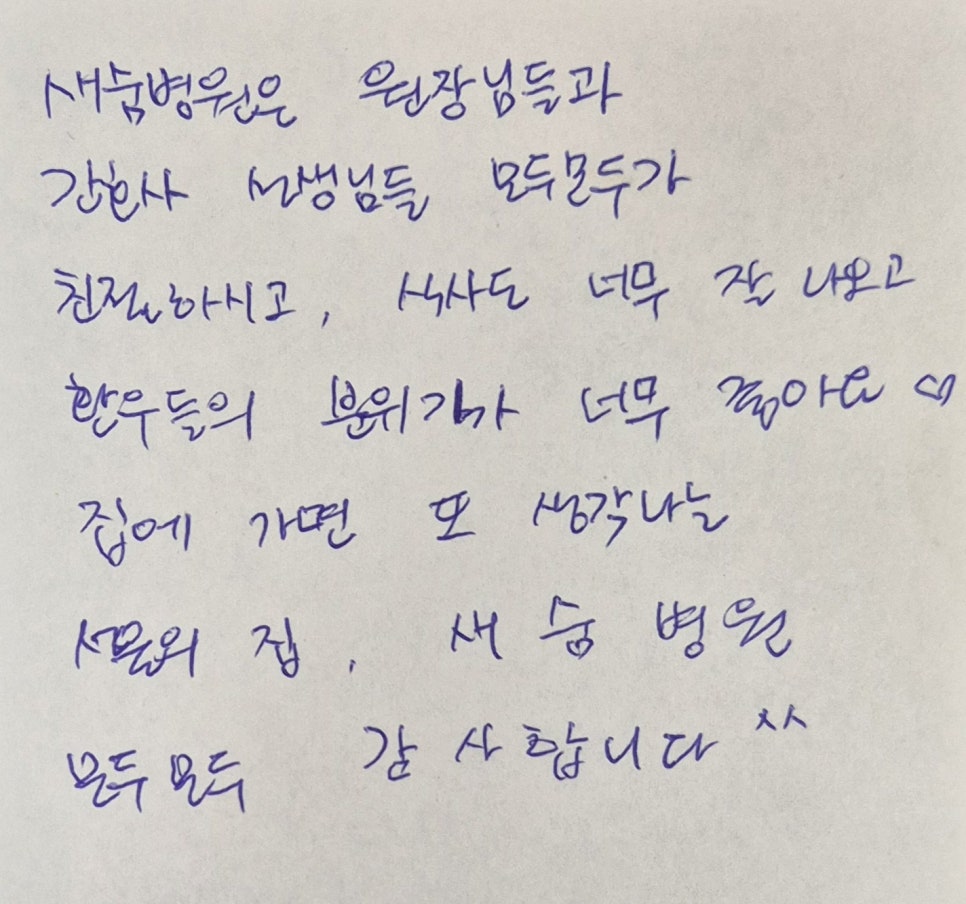 새숨병원은 원장님들과
간호사 선생님들 모두모두가
친절하시고, 식사도 너무 잘 나오고
환우들의 분위기가 너무 좋아요 ♡
집에 가면 또 생각나는
집, 새 숨 병원
모두모두 감사합니다 ^^